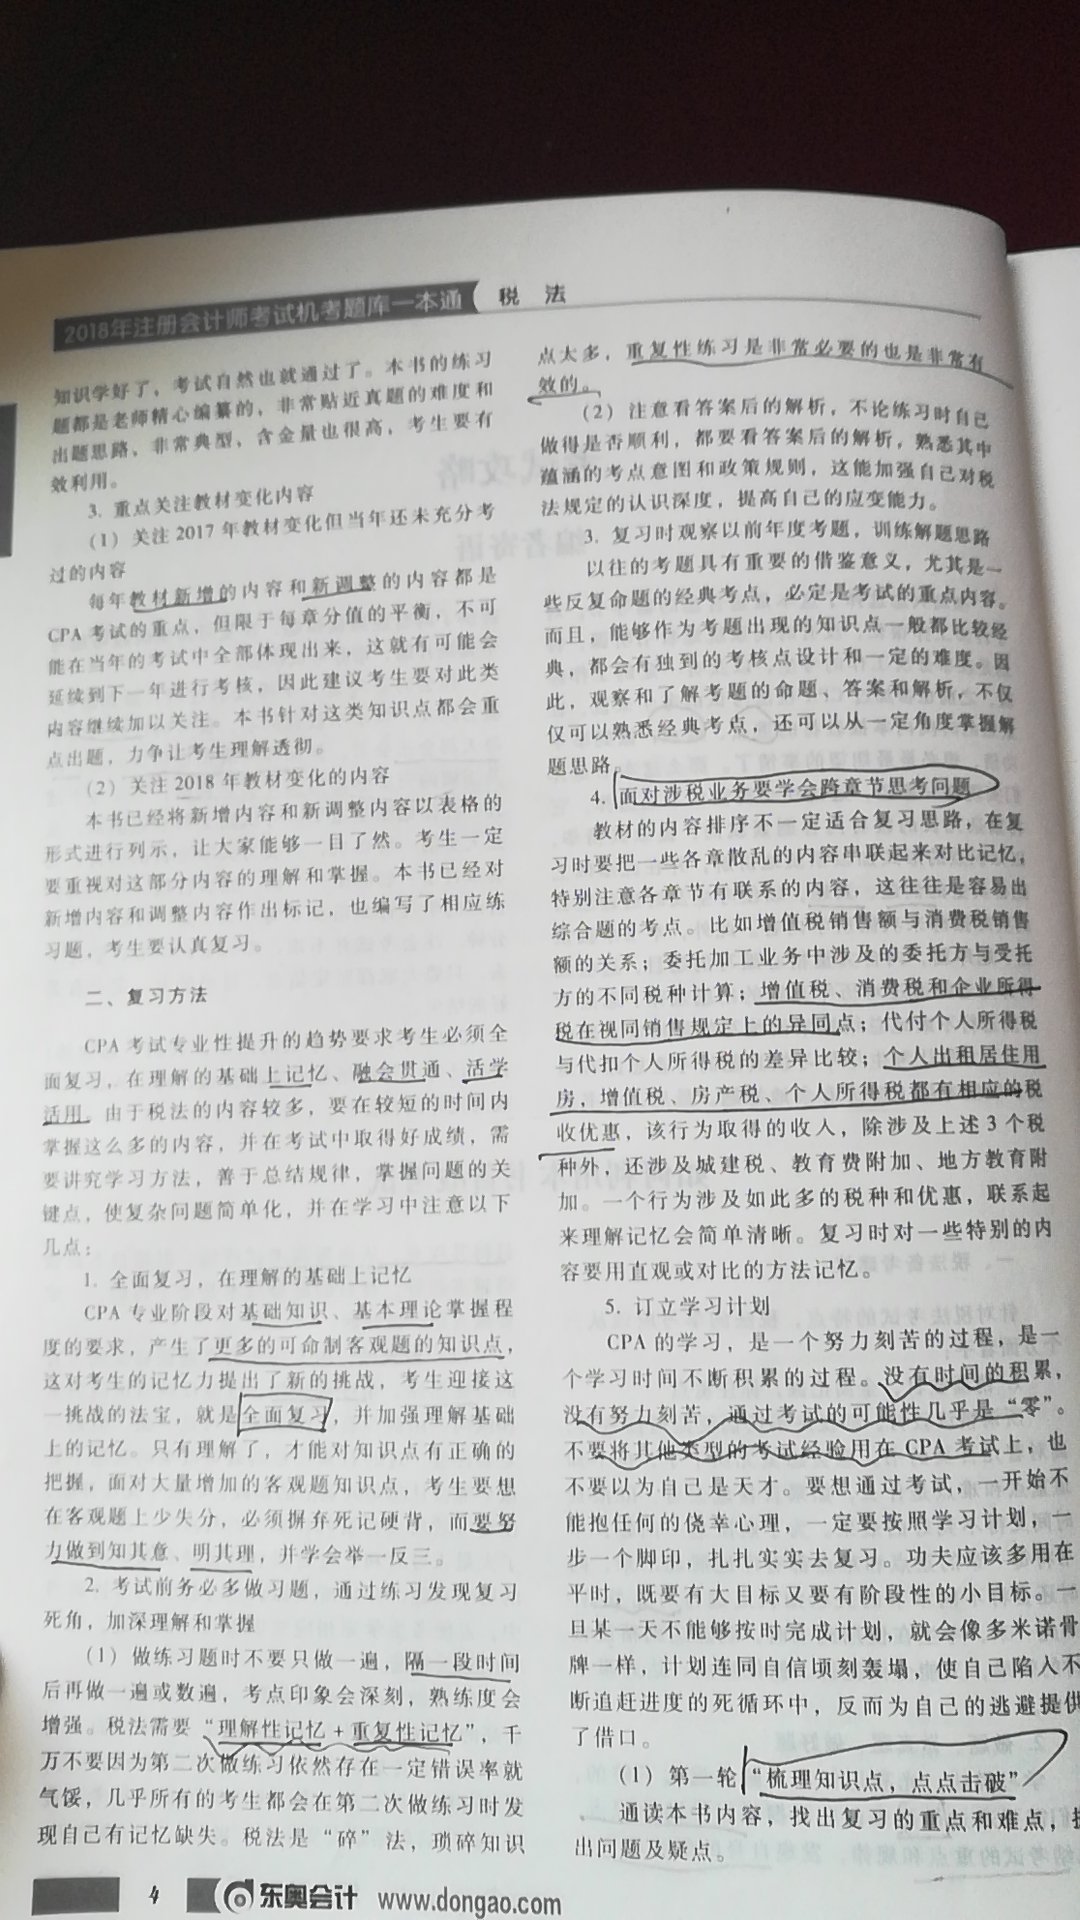 2018年注册会计师考试机考题库一本通 税 法
知识学好了，考试自然也就通过了。本书的练习
题都是老师精心编纂的，非常贴近真题的难度和
出题思路，非常典型，含金量也很高，考生要有
效利用。
3. 重点关注教材变化内容
（1）关注 2017 年教材变化但当年还未充分考
过的内容
每年教材新增的内容和新调整的内容都是
CPA 考试的重点，但限于每章分值的平衡，不可
能在当年的考试中全部体现出来，这就有可能会
延续到下一年进行考核，因此建议考生要对此类
内容继续加以关注。本书针对这类知识点都会重
点出题，力争让考生理解透彻。
（2）关注 2018 年教材变化的内容
本书已经将新增内容和新调整内容以表格的
形式进行列示，让大家能够一目了然。考生一定
要重视对这部分内容的理解和掌握。本书已经对
新增内容和调整内容作出标记，也编写了相应练
习题，考生要认真复习。
二、复习方法
CPA 考试专业性提升的趋势要求考生必须全
面复习，在理解的基础上记忆、融会贯通、活学
活用。由于税法的内容较多，要在较短的时间内
掌握这么多的内容，并在考试中取得好成绩，需
要讲究学习方法，善于总结规律，掌握问题的关
键点，使复杂问题简单化，并在学习中注意以下
几点：
1. 全面复习，在理解的基础上记忆
CPA 专业阶段对基础知识、基本理论掌握程
度的要求，产生了更多的可命制客观题的知识点，
这对考生的记忆力提出了新的挑战，考生迎接这
一挑战的法宝，就是全面复习，并加强理解基础
上的记忆。只有理解了，才能对知识点有正确的
把握，面对大量增加的客观题知识点，考生要想
在客观题上少失分，必须摒弃死记硬背，而要努
力做到知其意、明其理，并学会举一反三。
2. 考试前务必多做习题，通过练习发现复习
死角，加深理解和掌握
（1）做练习题时不要只做一遍，隔一段时间
后再做一遍或数遍，考点印象会深刻，熟练度会
增强。税法需要“理解性记忆+重复性记忆”，千
万不要因为第二次做练习依然存在一定错误率就
气馁，几乎所有的考生都会在第二次做练习时发
现自己有记忆缺失。税法是“碎”法，琐碎知识
点太多，重复性练习是非常必要的也是非常有
效的。
（2）注意看答案后的解析，不论练习时自己
做得是否顺利，都要看答案后的解析，熟悉其中
蕴涵的考点意图和政策规则，这能加强自己对税
法规定的认识深度，提高自己的应变能力。
3. 复习时观察以前年度考题，训练解题思路
以往的考题具有重要的借鉴意义，尤其是一
些反复命题的经典考点，必定是考试的重点内容。
而且，能够作为考题出现的知识点一般都比较经
典，都会有独到的考核点设计和一定的难度。因
此，观察和了解考题的命题、答案和解析，不仅
仅可以熟悉经典考点，还可以从一定角度掌握解
题思路。
4. 面对涉税业务要学会跨章节思考问题
教材的内容排序不一定适合复习思路，在复
习时要把一些各章散乱的内容串联起来对比记忆，
特别注意各章节有联系的内容，这往往是容易出
综合题的考点。比如增值税销售额与消费税销售
额的关系；委托加工业务中涉及的委托方与受托
方的不同税种计算；增值税、消费税和企业所得
税在视同销售规定上的异同点；代付个人所得税
与代扣个人所得税的差异比较；个人出租居住用
房，增值税、房产税、个人所得税都有相应的税
收优惠，该行为取得的收入，除涉及上述 3 个税
种外，还涉及城建税、教育费附加、地方教育附
加。一个行为涉及如此多的税种和优惠，联系起
来理解记忆会简单清晰。复习时对一些特别的内
容要用直观或对比的方法记忆。
5. 订立学习计划
CPA 的学习，是一个努力刻苦的过程，是一
个学习时间不断积累的过程。没有时间的积累，
没有努力刻苦，通过考试的可能性几乎是“零”。
不要将其他类型的考试经验用在 CPA 考试上，也
不要以为自己是天才。要想通过考试，一开始不
能抱任何的侥幸心理，一定要按照学习计划，一
步一个脚印，扎扎实实去复习。功夫应该多用在
平时，既要有大目标又要有阶段性的小目标。一
旦某一天不能够按时完成计划，就会像多米诺骨
牌一样，计划连同自信顷刻轰塌，使自己陷入不
断追赶进度的死循环中，反而为自己的逃避提供
了借口。
（1）第一轮“梳理知识点，点点击破”
通读本书内容，找出复习的重点和难点，
出问题及疑点。
4 东奥会计 www.dongao.com